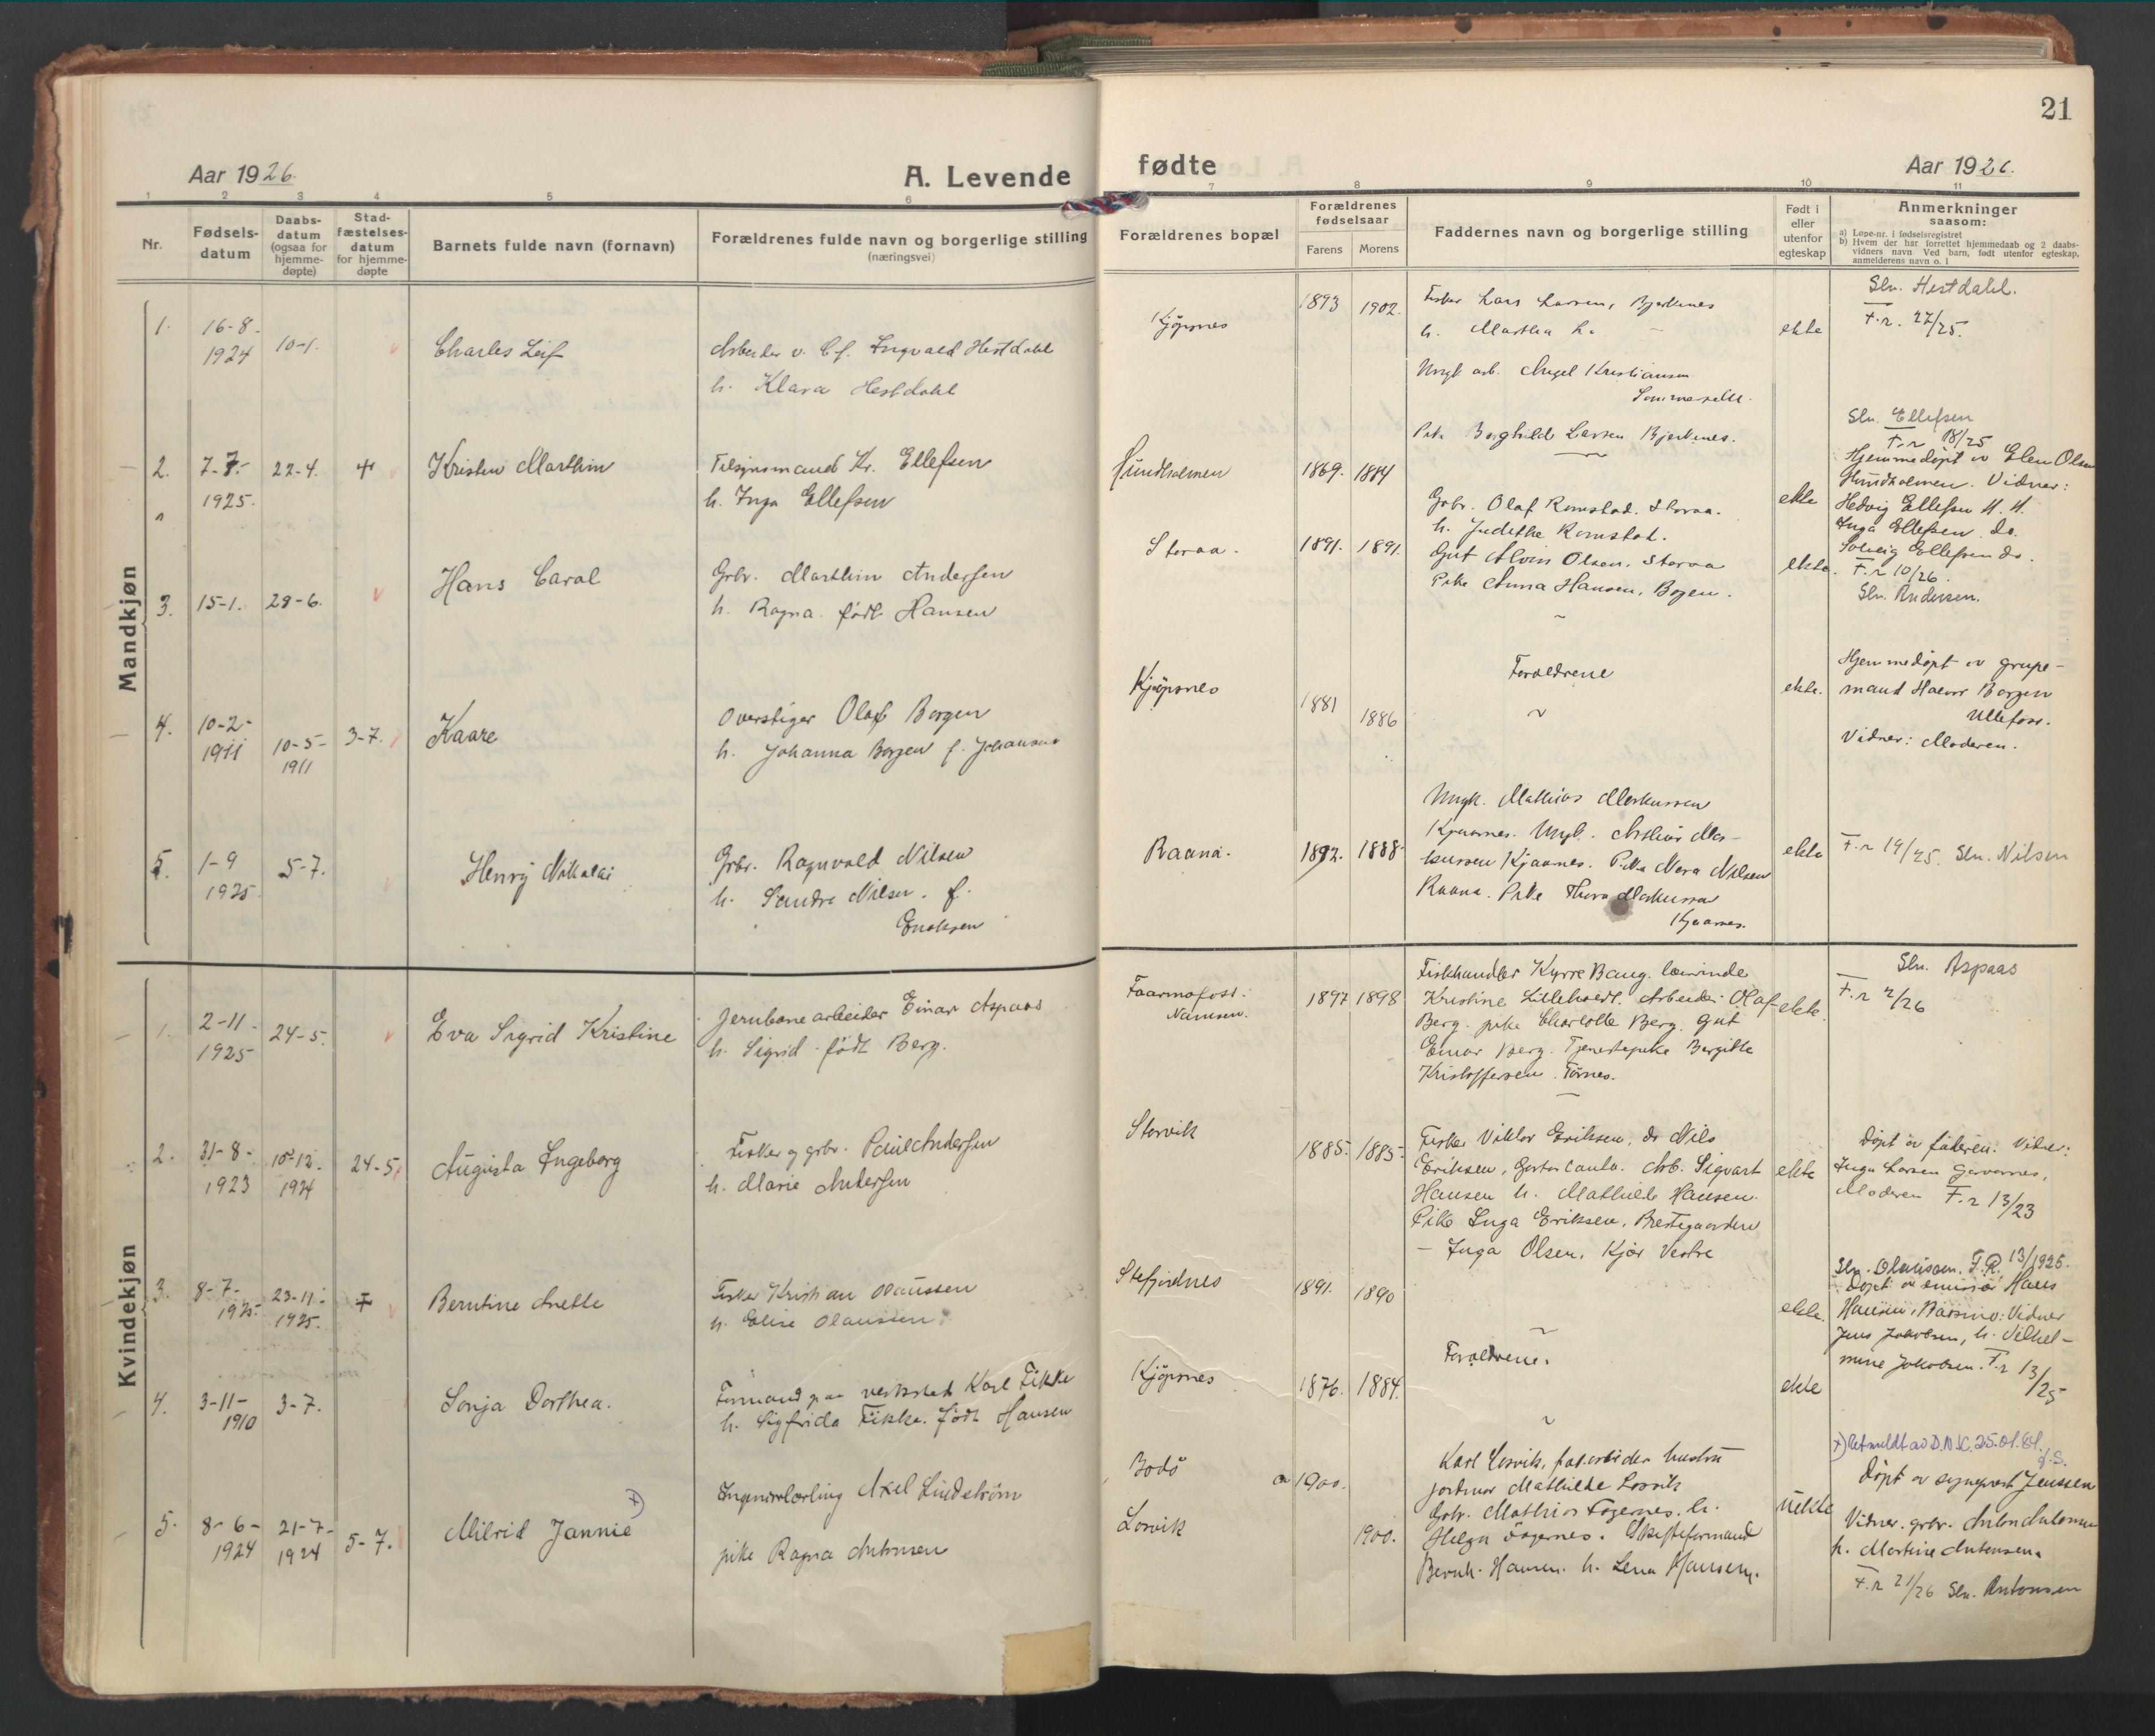 21
Aar 1926.
A. Levende
fødte
Aar 1926.
1 2 3 4 5 6
7 8 9 10 11
Nr.
Fødsels-
datum
Daabs-
datum
(ogsaa for
hjemme-
døpte)
Stad-
fæstelses-
datum
for hjemme-
døpte
Barnets fulde navn (fornavn)
Forældrenes fulde navn og borgerlige stilling
(næringsvei)
Forældrenes bopæl
Forældrenes
fødselsaar
Farens Morens
Faddernes navn og borgerlige stilling
Født i
eller
utenfor
egteskap
Anmerkninger
saasom:
a) Løpe-nr. i fødselsregistret
b) Hvem der har forrettet hjemmedaab og 2 daabs-
vidners navn Ved barn, født utenfor egteskap,
anmelderens navn o. l
Mandkjøn
1. 16-8-
1924
10-1.
Charles Leif
Arbeider v. Ingvald Hestdahl
h. Klara Hestdahl
Kjöpsnes
1893 1902.
Fisker Lars Larsen, Bjerkenes
h. Martha L. —
Ungk. arb. Angel Kristiansen
Pike Borghild Larsen Bjerkenes.
ekte
Sln. Hestdahl.
F.r. 27/25.
2. 7-7-
1925.
22-4.
Kristen Marthin
Tilsynsmand Kr. Ellefsen
h. Inga Ellefsen
Hundholmen
1869. 1884
Grbr. Olaf Romstad. Storaa.
h. Judithe Romstad.
ekte
Sln. Ellefsen
F.r 18/25
Hjemmedöpt av Elen Olsen
Hundholmen. Vidner:
Hedvig Ellefsen H. H.
Inga Ellefsen do.
Solveig Ellefsen do.
3. 15-1. 29-6.
Hans Carol
Grbr. Marthin Andersen
h. Ragna. född Hansen
Storaa.
1891. 1891.
Gut Alvin Olsen, Storaa
Pike Anna Hansen, Bogen.
ekte.
F.r 10/26.
Sln. Andersen.
4. 10-2-
1911
10-5-
1911
3-7.
Kaare
Overstiger Olaf Borgen
h. Johanna Borgen f. Johansen
Kjöpsnes
1881
1886
Foreldrene
ekte.
Hjemmedöpt av grube-
mand Haavor Borgen
Ullefoss.
Vidner: Moderen.
5. 1-9
1925
5-7.
Henry Nikolai
Grbr. Ragnvald Nilsen
h. Sandra Nilsen. f.
Enoksen
Raana.
1892. 1888
Ungk. Mathias Markussen
Kjaarnes. Ungk. Arthur Mar-
kussen Kjaarnes. Pike Nora Nilsen
Raana. Pike Thora Markussen
Kjaarnes.
ekte
F.r 19/25. Sln. Nilsen
Kvindekjøn
1. 2-11-
1925
24-5.
Eva Sigrid Kristine
Jernbanearbeider Einar Aspaas
h. Sigrid född Berg.
Namsen.
1897 1898
Fiskhandler Kyrre Baug. lærerinde
Kristine Lillehaedt. Arbeider Olaf
Berg. pike Charlotte Berg. Gut
Einar Berg. Tjenestepike Bergitte
Kristoffersen. Törnes.
ekte.
Sln. Aspaas
F.r 2/26
2. 31-8-
1923
10-12-
1924
24-5
Augusta Ingeborg
Fisker og grbr. Paul Andersen
h. Marie Andersen
Storvik
1885. 1885-
Fisker Viktor Eriksen, do Nils
Eriksen, Arb. Sigvart
Hansen h. Mathilde Hansen.
Pike Inga Eriksen, Prestegaarden
— Inga Olsen, Kjær Vestre
ekte
Döpt av faderen: Vidner:
Inga Larsen
Moderen F.r 13/23
3. 8-7-
1925
23-11-
1925.
Berntine Anette
Fisker Kristian Olaussen
h. Elise Olaussen
Stefjordnes
1891. 1890
ekte.
Sln. Olaussen. F.R. 13/1925.
Döpt av emissær Hans
Hansen, Vidner
Jens Jakobsen, h. Vilhel-
mine Jakobsen. F.r 13/25
4. 3-11-
1910
3-7.
Sonja Dorthea.
Formand paa verksted Karl Fikke
h. Sigfrida Fikke. född Hansen
Kjöpsnes
1876. 1884.
Foreldrene.
ekte
5. 8-6-
1924
21-7-
1924
5-7.
Milrid Jannie x)
Ingeniörlærling Axel Lindström
pike Ragna Antonsen
Bodö
Losvik
1900.
1900.
Karl Losvik, fab.arbeider hustru
jordmor Mathilde Losvik
Grbr. Mathias Fagernes. h.
Helga Fagernes. Skifteformand
Bernh. Hansen. h. Lena Hansen.
uekte
x) Utmeldt av D.N.K. 25.01.81.
Döpt av sogneprest Jenssen
Vidner. grbr. Anton Antonsen
h. Martine Antonsen
F.r 21/26 Sln. Antonsen